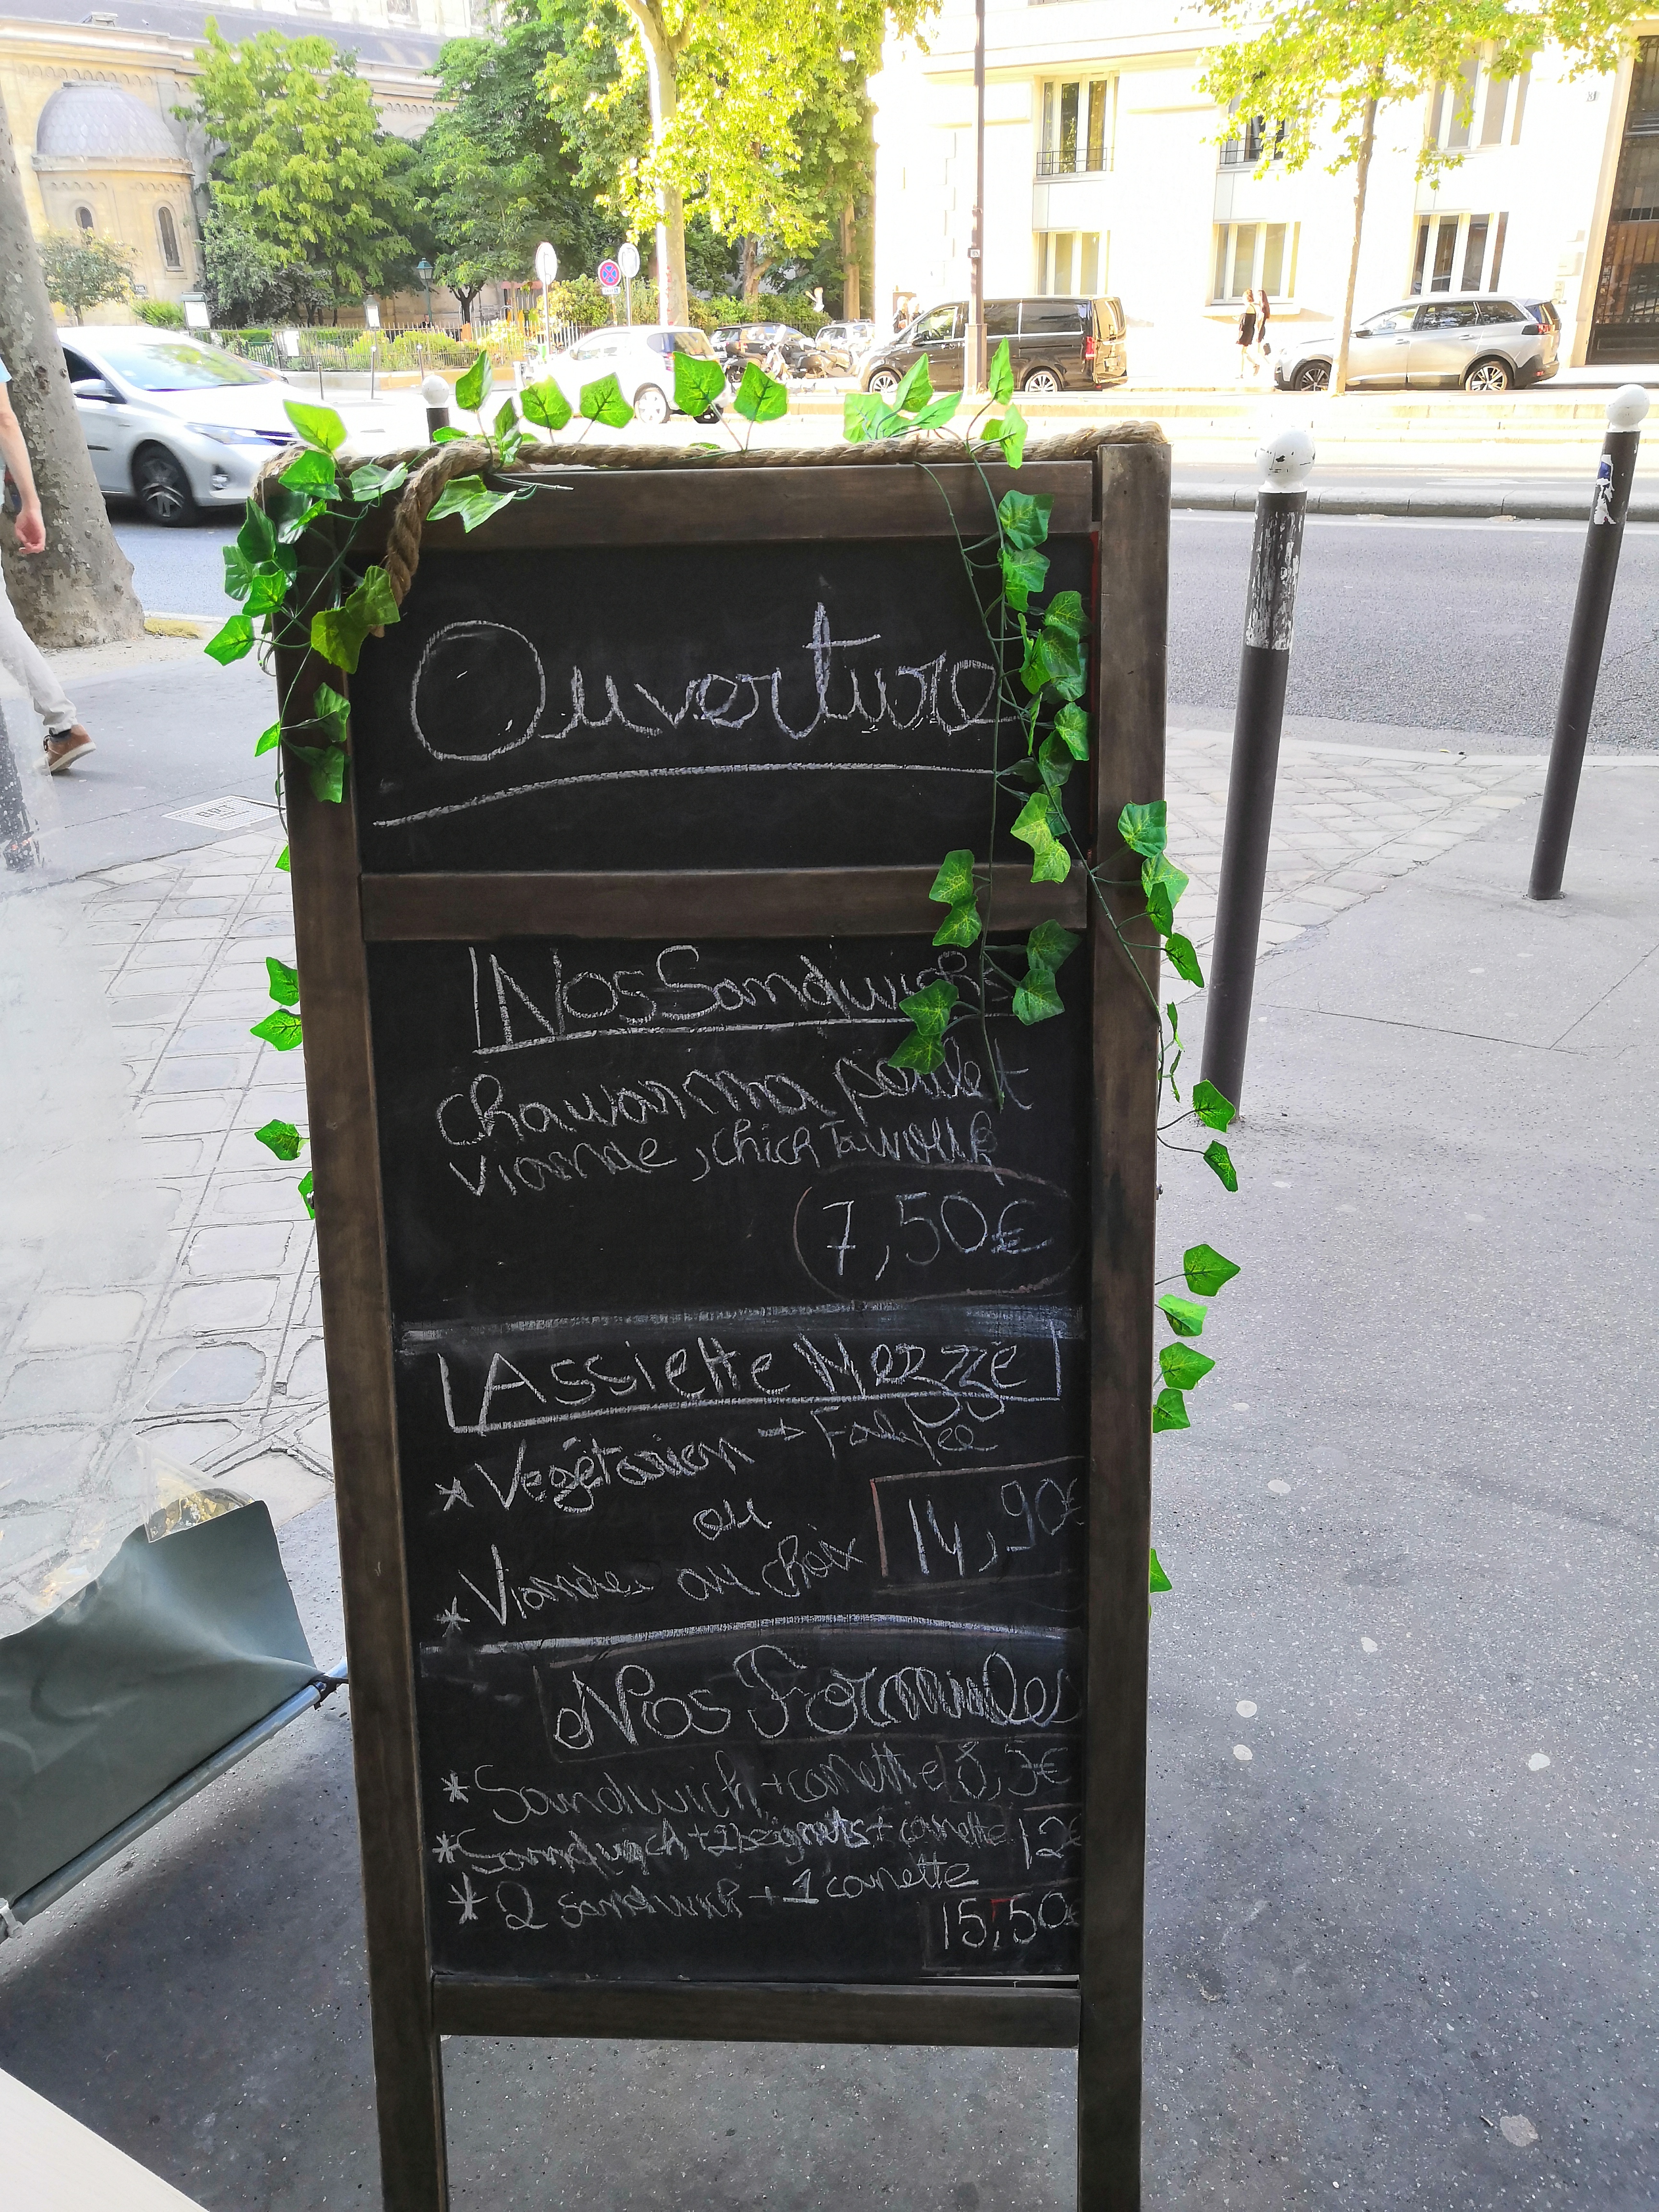 Ouverture
Nos Sandwichs
chawarma poulet
viande, chich Tawouk
7,50€
Assiette Mezzé
* Végétarien → Falafel
ou
* Viandes au choix
14,90€
Nos Formules
* Sandwich + canette 8,5€
* Sandwich + 2 beignets + canette 12€
* 2 sandwich + 1 canette
15,50€